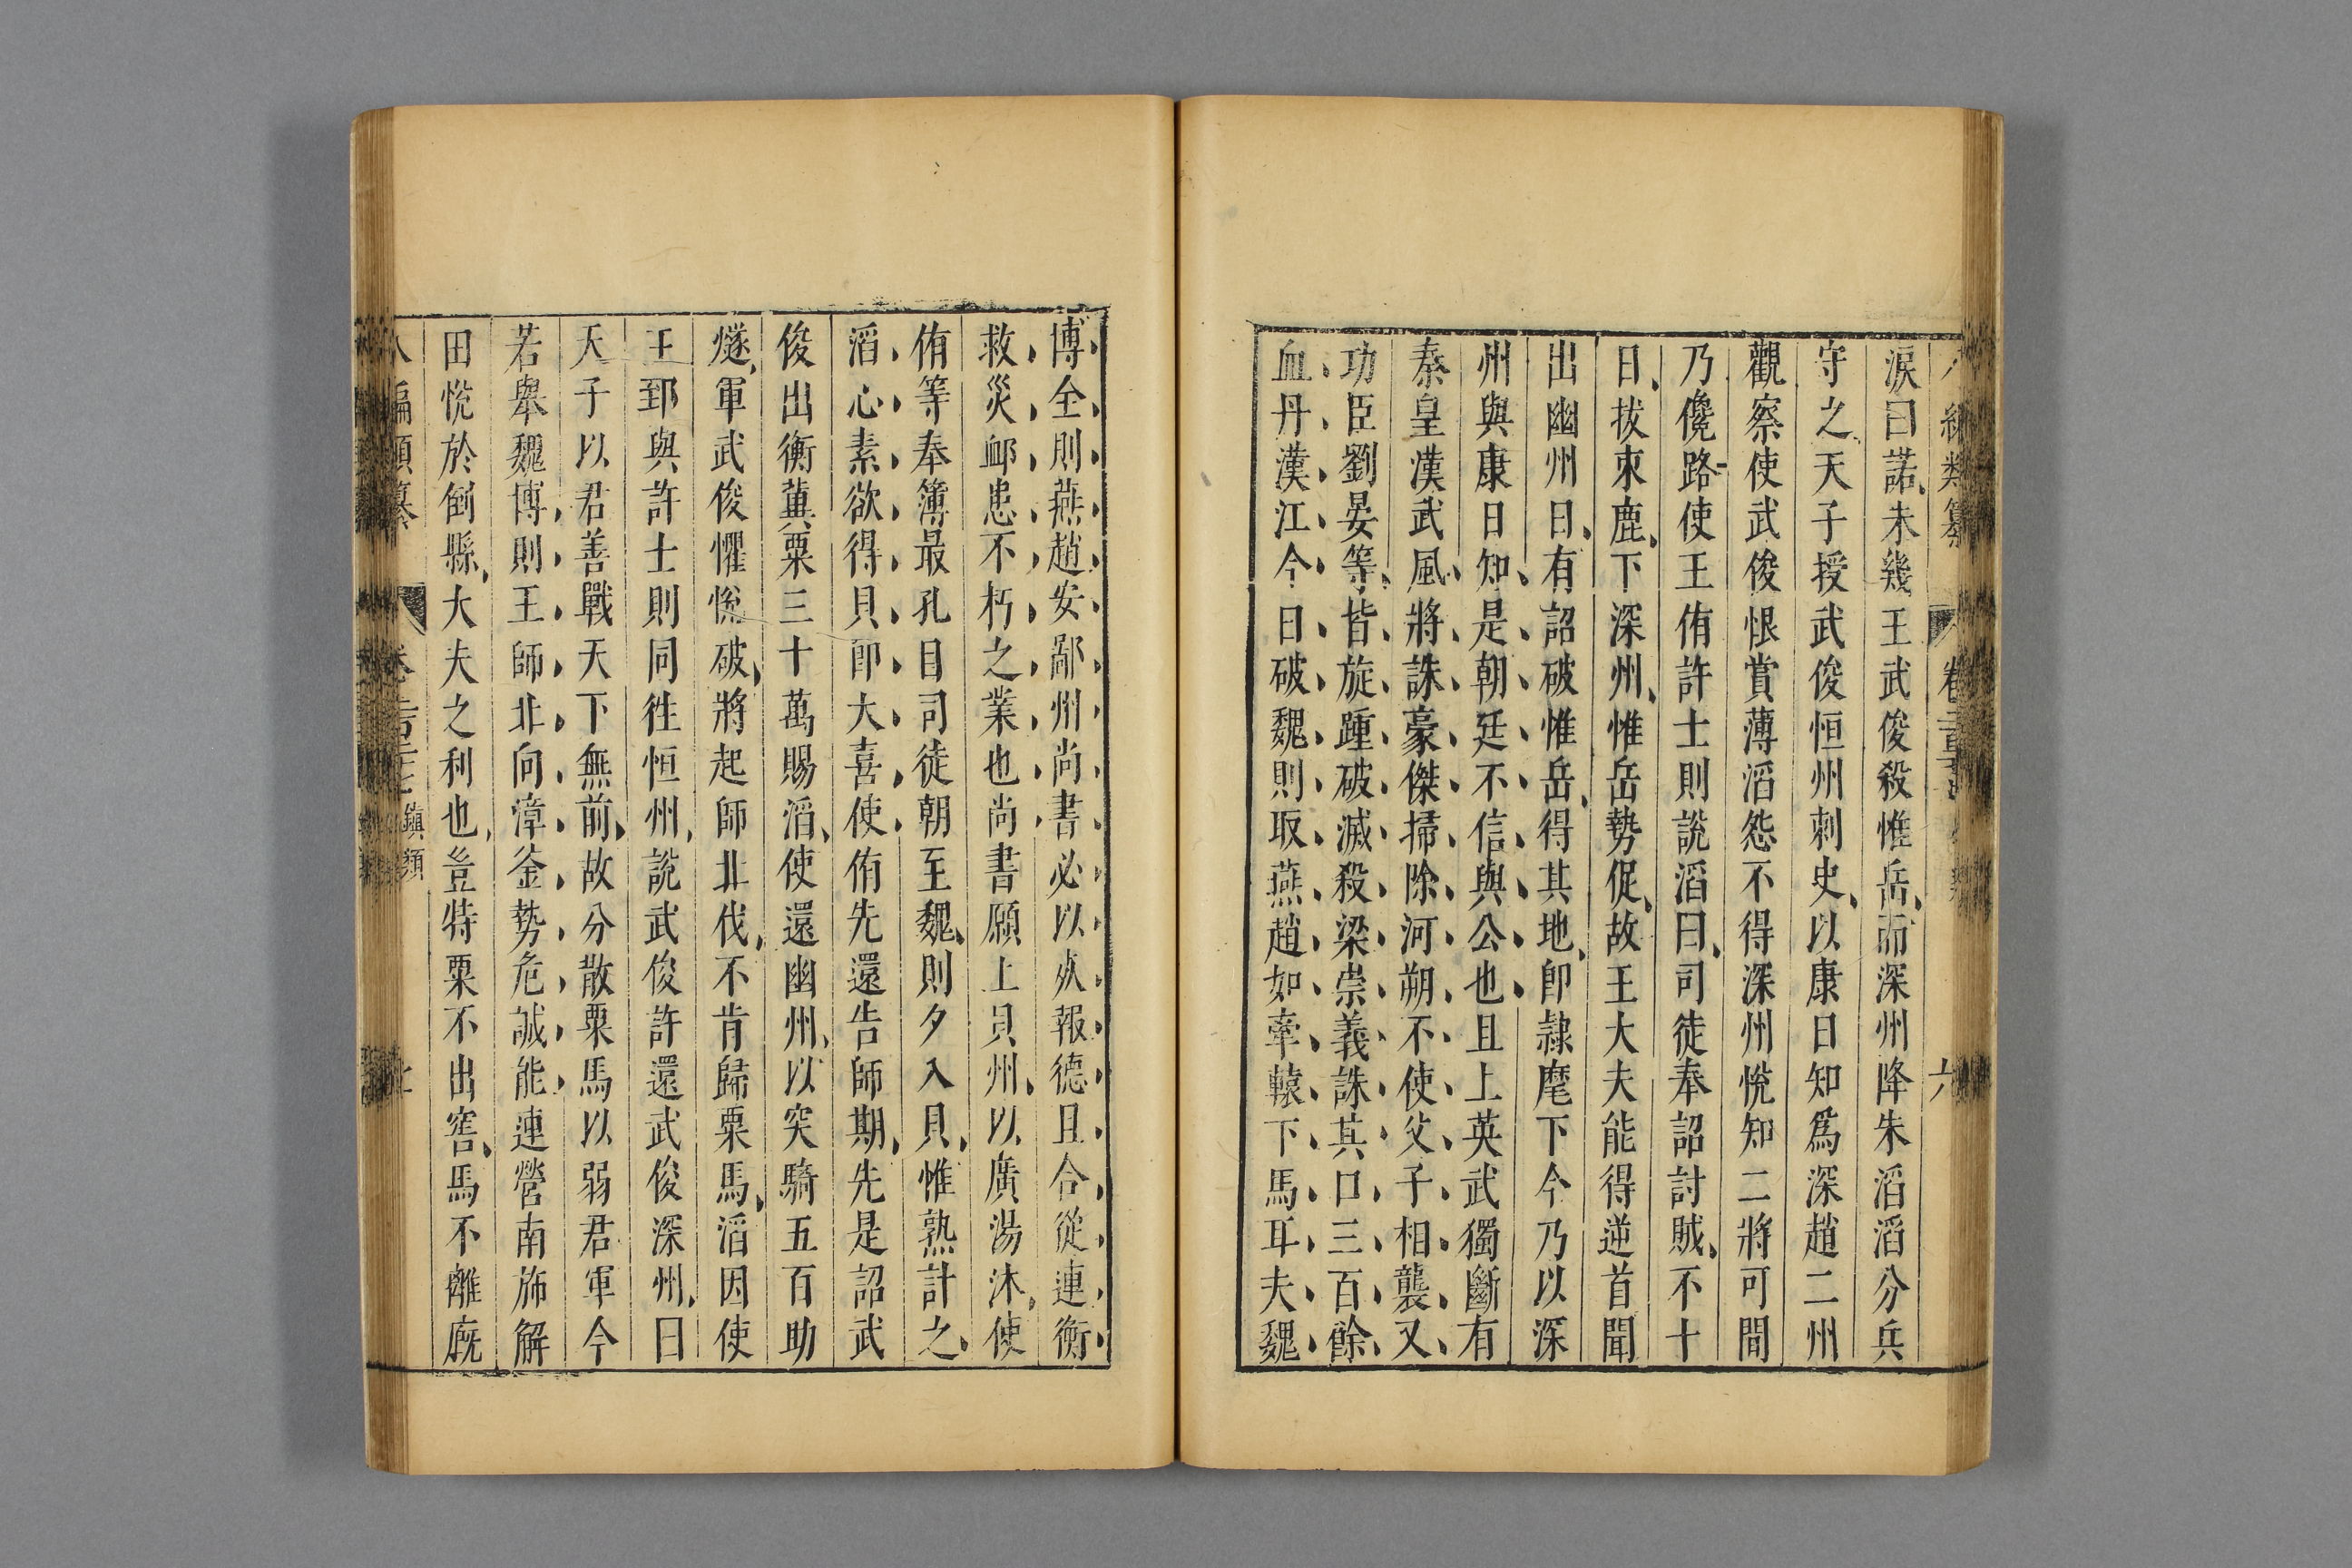 淚曰諾未幾王武俊殺惟岳而深州降朱滔滔分兵
守之天子授武俊恒州刺史以康日知爲深趙二州
觀察使武俊恨賞薄滔怨不得深州悅知二將可間
乃儳路使王侑許士則說滔曰司徒奉詔討賊不十
日拔束鹿下深州惟岳勢促故王大夫能得逆首聞
出幽州日有詔破惟岳得其地卽隷麾下今乃以深
州與康日知是朝廷不信與公也且上英武獨斷有
秦皇漢武風將誅豪傑掃除河朔不使父子相襲又
功臣劉晏等皆旋踵破滅殺梁崇義誅其口三百餘
血丹漢江今日破魏則取燕趙如牽轅下馬耳夫魏
博全則燕趙安鄙州尚書必以死報德且合從連衡
救災卹患不朽之業也尚書願上貝州以廣湯沐使
侑等奉簿最孔目司徒朝至魏則夕入貝惟熟計之
滔心素欲得貝卽大喜使侑先還告師期先是詔武
俊出衡冀粟三十萬賜滔使還幽州以突騎五百助
燧軍武俊懼悅破將起師北伐不肯歸粟馬滔因使
王郅與許士則同徃恒州說武俊許還武俊深州曰
天子以君善戰天下無前故分散粟馬以弱君軍今
若舉魏博則王師北向漳釜勢危誠能連營南旆解
田悅於倒縣大夫之利也豈特粟不出窖馬不離廐